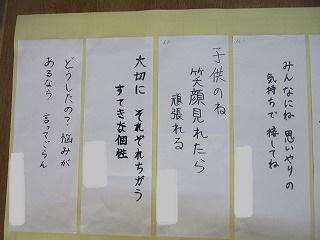 みんなにね 思いやりの
気持ちで 接してね
子供のね
笑顔見れたら
頑張れる
大切に それぞれちがう
すてきな個性
どうしたの？悩みが
あるなら 言ってごらん